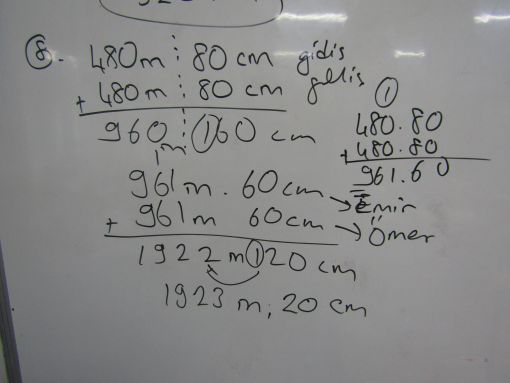 8. 480m 80 cm gidis
+ 480m 80 cm gelis
960 160 cm
1m
961m. 60cm → Emir
+ 961m 60cm → Ömer
1922 m 120 cm
1923 m, 20 cm
1
480.80
+ 480.80
961.60